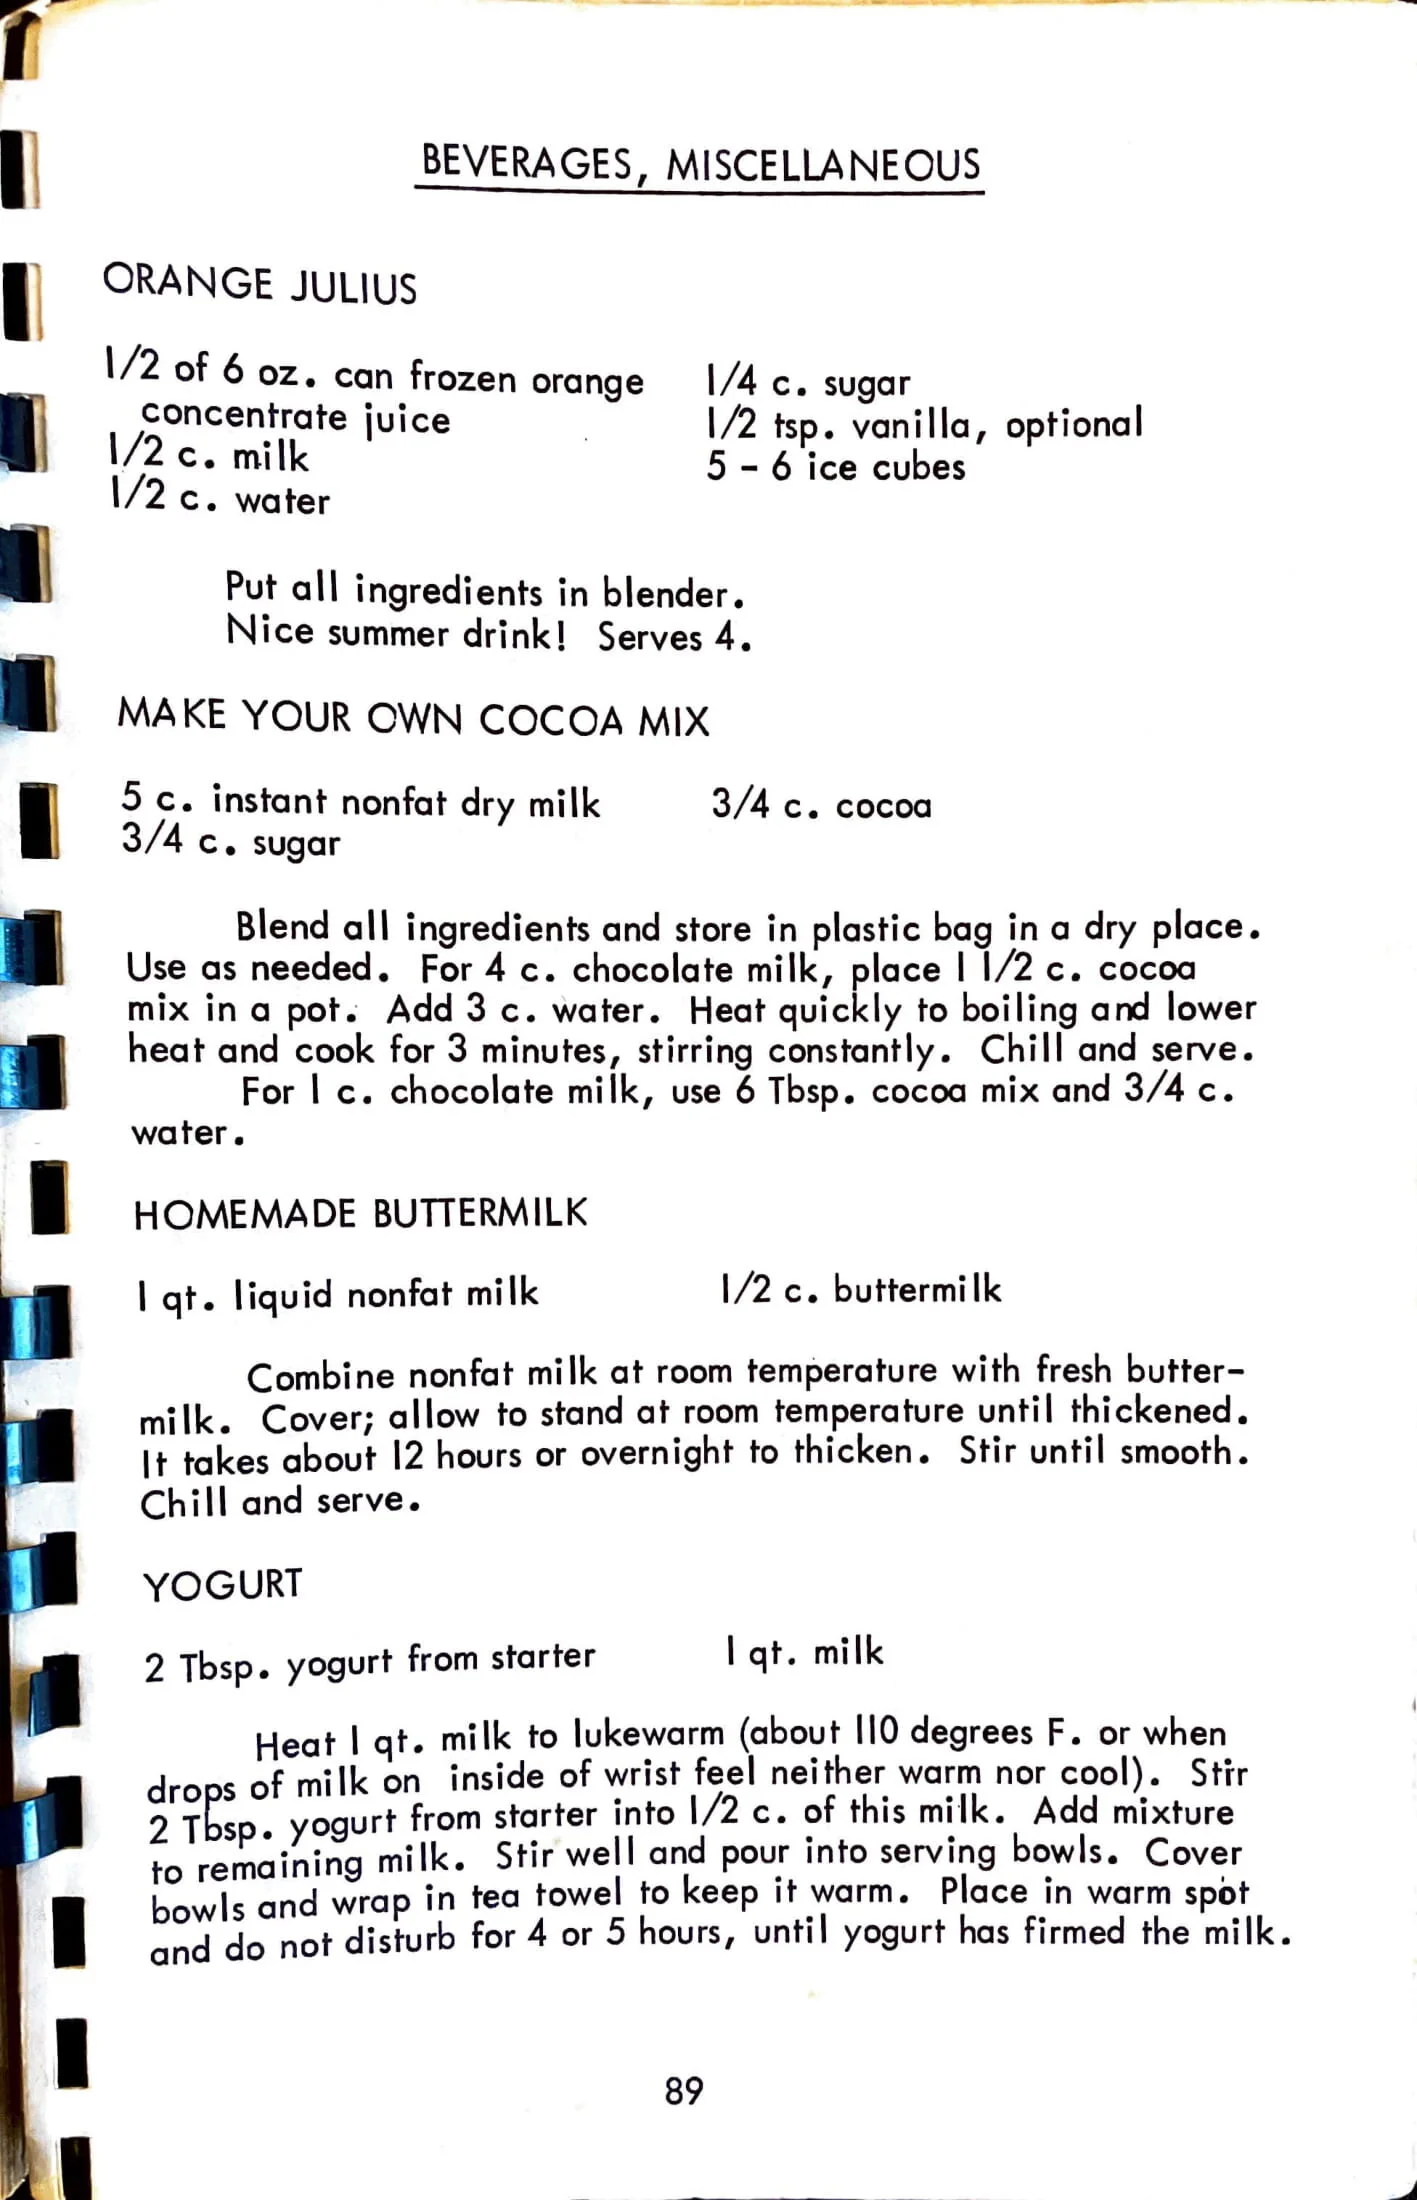 BEVERAGES, MISCELLANEOUS
ORANGE JULIUS
1/2 of 6 oz. can frozen orange
concentrate juice
1/2 c. milk
1/2 c. water
1/4 c. sugar
1/2 tsp. vanilla, optional
5 - 6 ice cubes
Put all ingredients in blender.
Nice summer drink! Serves 4.
MAKE YOUR OWN COCOA MIX
5 c. instant nonfat dry milk
3/4 c. sugar
3/4 c. cocoa
Blend all ingredients and store in plastic bag in a dry place.
Use as needed. For 4 c. chocolate milk, place 1 1/2 c. cocoa
mix in a pot. Add 3 c. water. Heat quickly to boiling and lower
heat and cook for 3 minutes, stirring constantly. Chill and serve.
For 1 c. chocolate milk, use 6 Tbsp. cocoa mix and 3/4 c.
water.
HOMEMADE BUTTERMILK
1 qt. liquid nonfat milk
1/2 c. buttermilk
Combine nonfat milk at room temperature with fresh butter-
milk. Cover; allow to stand at room temperature until thickened.
It takes about 12 hours or overnight to thicken. Stir until smooth.
Chill and serve.
YOGURT
2 Tbsp. yogurt from starter
1 qt. milk
Heat 1 qt. milk to lukewarm (about 110 degrees F. or when
drops of milk on inside of wrist feel neither warm nor cool). Stir
2 Tbsp. yogurt from starter into 1/2 c. of this milk. Add mixture
to remaining milk. Stir well and pour into serving bowls. Cover
bowls and wrap in tea towel to keep it warm. Place in warm spot
and do not disturb for 4 or 5 hours, until yogurt has firmed the milk.
89